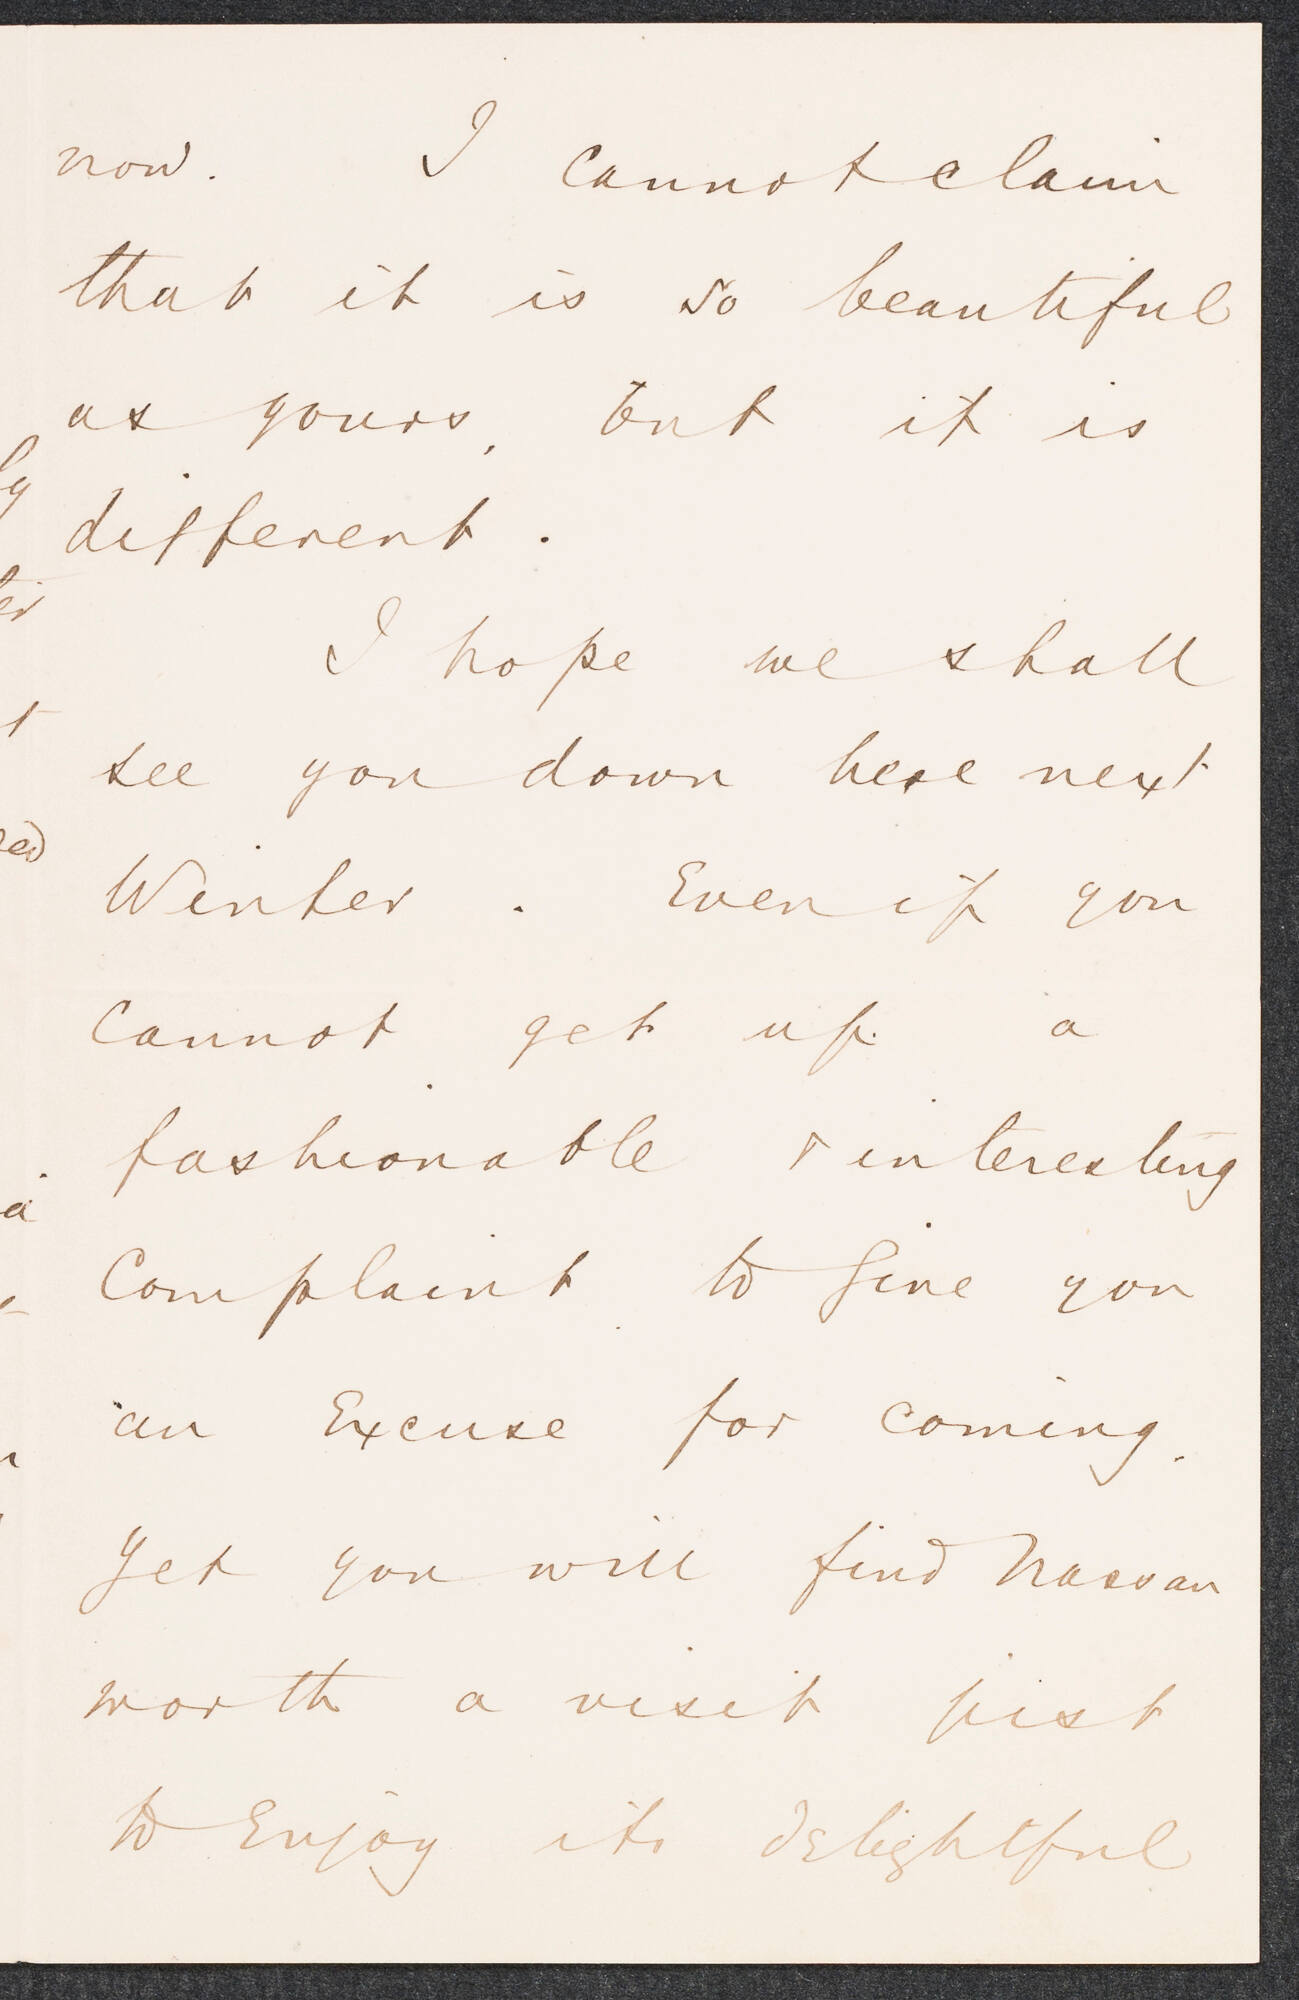 now. I cannot claim
that it is so beautiful
as yours, but it is
different.
I hope we shall
see you down here next
Winter. Even if you
cannot get up a
fashionable & interesting
Complaint to give you
an Excuse for coming.
yet you will find Nassau
worth a visit just
to Enjoy its delightful